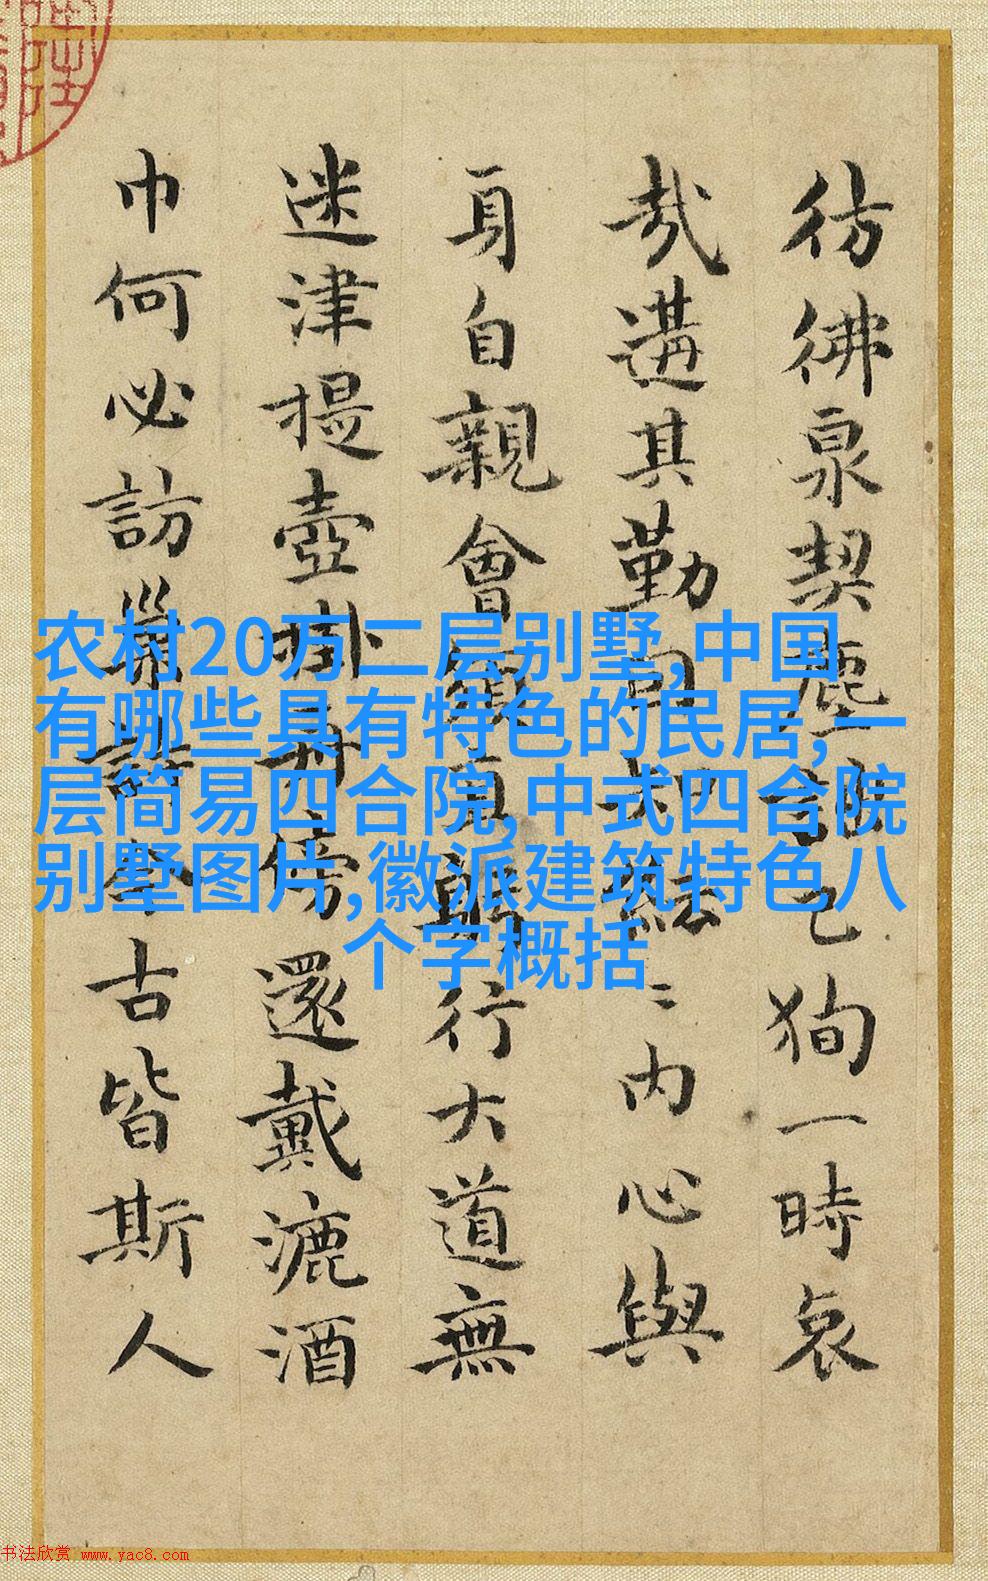 彷彿泉契塵
己狥一時哀
哉遘其勤
結〻内心與
身自親會
行大道無
迷津提壺掛
傍還戴漉酒
巾何必訪
古皆斯人
农村20万二层别墅,中国
有哪些具有特色的民居,一
层简易四合院,中式四合院
别墅图片,徽派建筑特色八
个字概括
书法欣赏 www.yac8.com